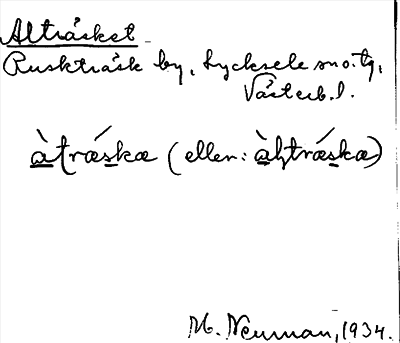 Alträsket
Ruskträsk by, Lycksele sn o. tg,
Västerb. l.
àtrǽska (eller: àltrǽska)
M. Neuman, 1934.